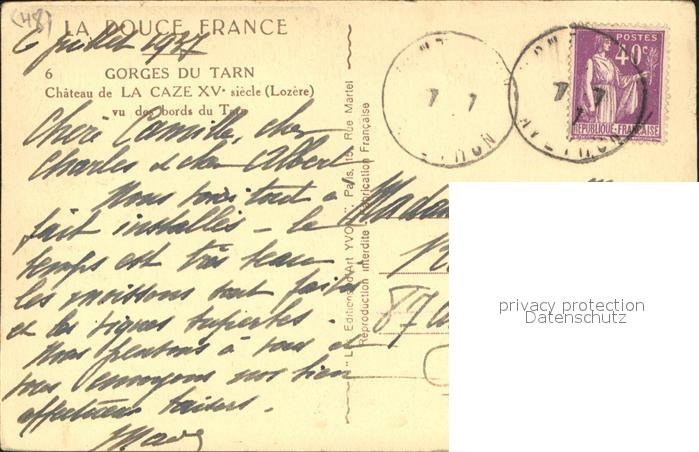 (48)
LA DOUCE FRANCE
6 juillet 1937
6 GORGES DU TARN
Château de LA CAZE XVe siècle (Lozère)
vu des bords du Tarn
Chère Camille, cher
Charles & cher Albert
Nous voici tout à
fait installés – le
temps est très beau
les moissons sont faites
et les vignes superbes.
Nous pensons à vous et
vous envoyons nos bien
affectueux baisers.
"LES Editions d'Art YVON", Paris, 15, Rue Martel
Reproduction interdite Fabrication Française
7 7
7 7
POSTES
40c
REPUBLIQUE-FRANÇAISE
Madam
87
privacy protection
Datenschutz